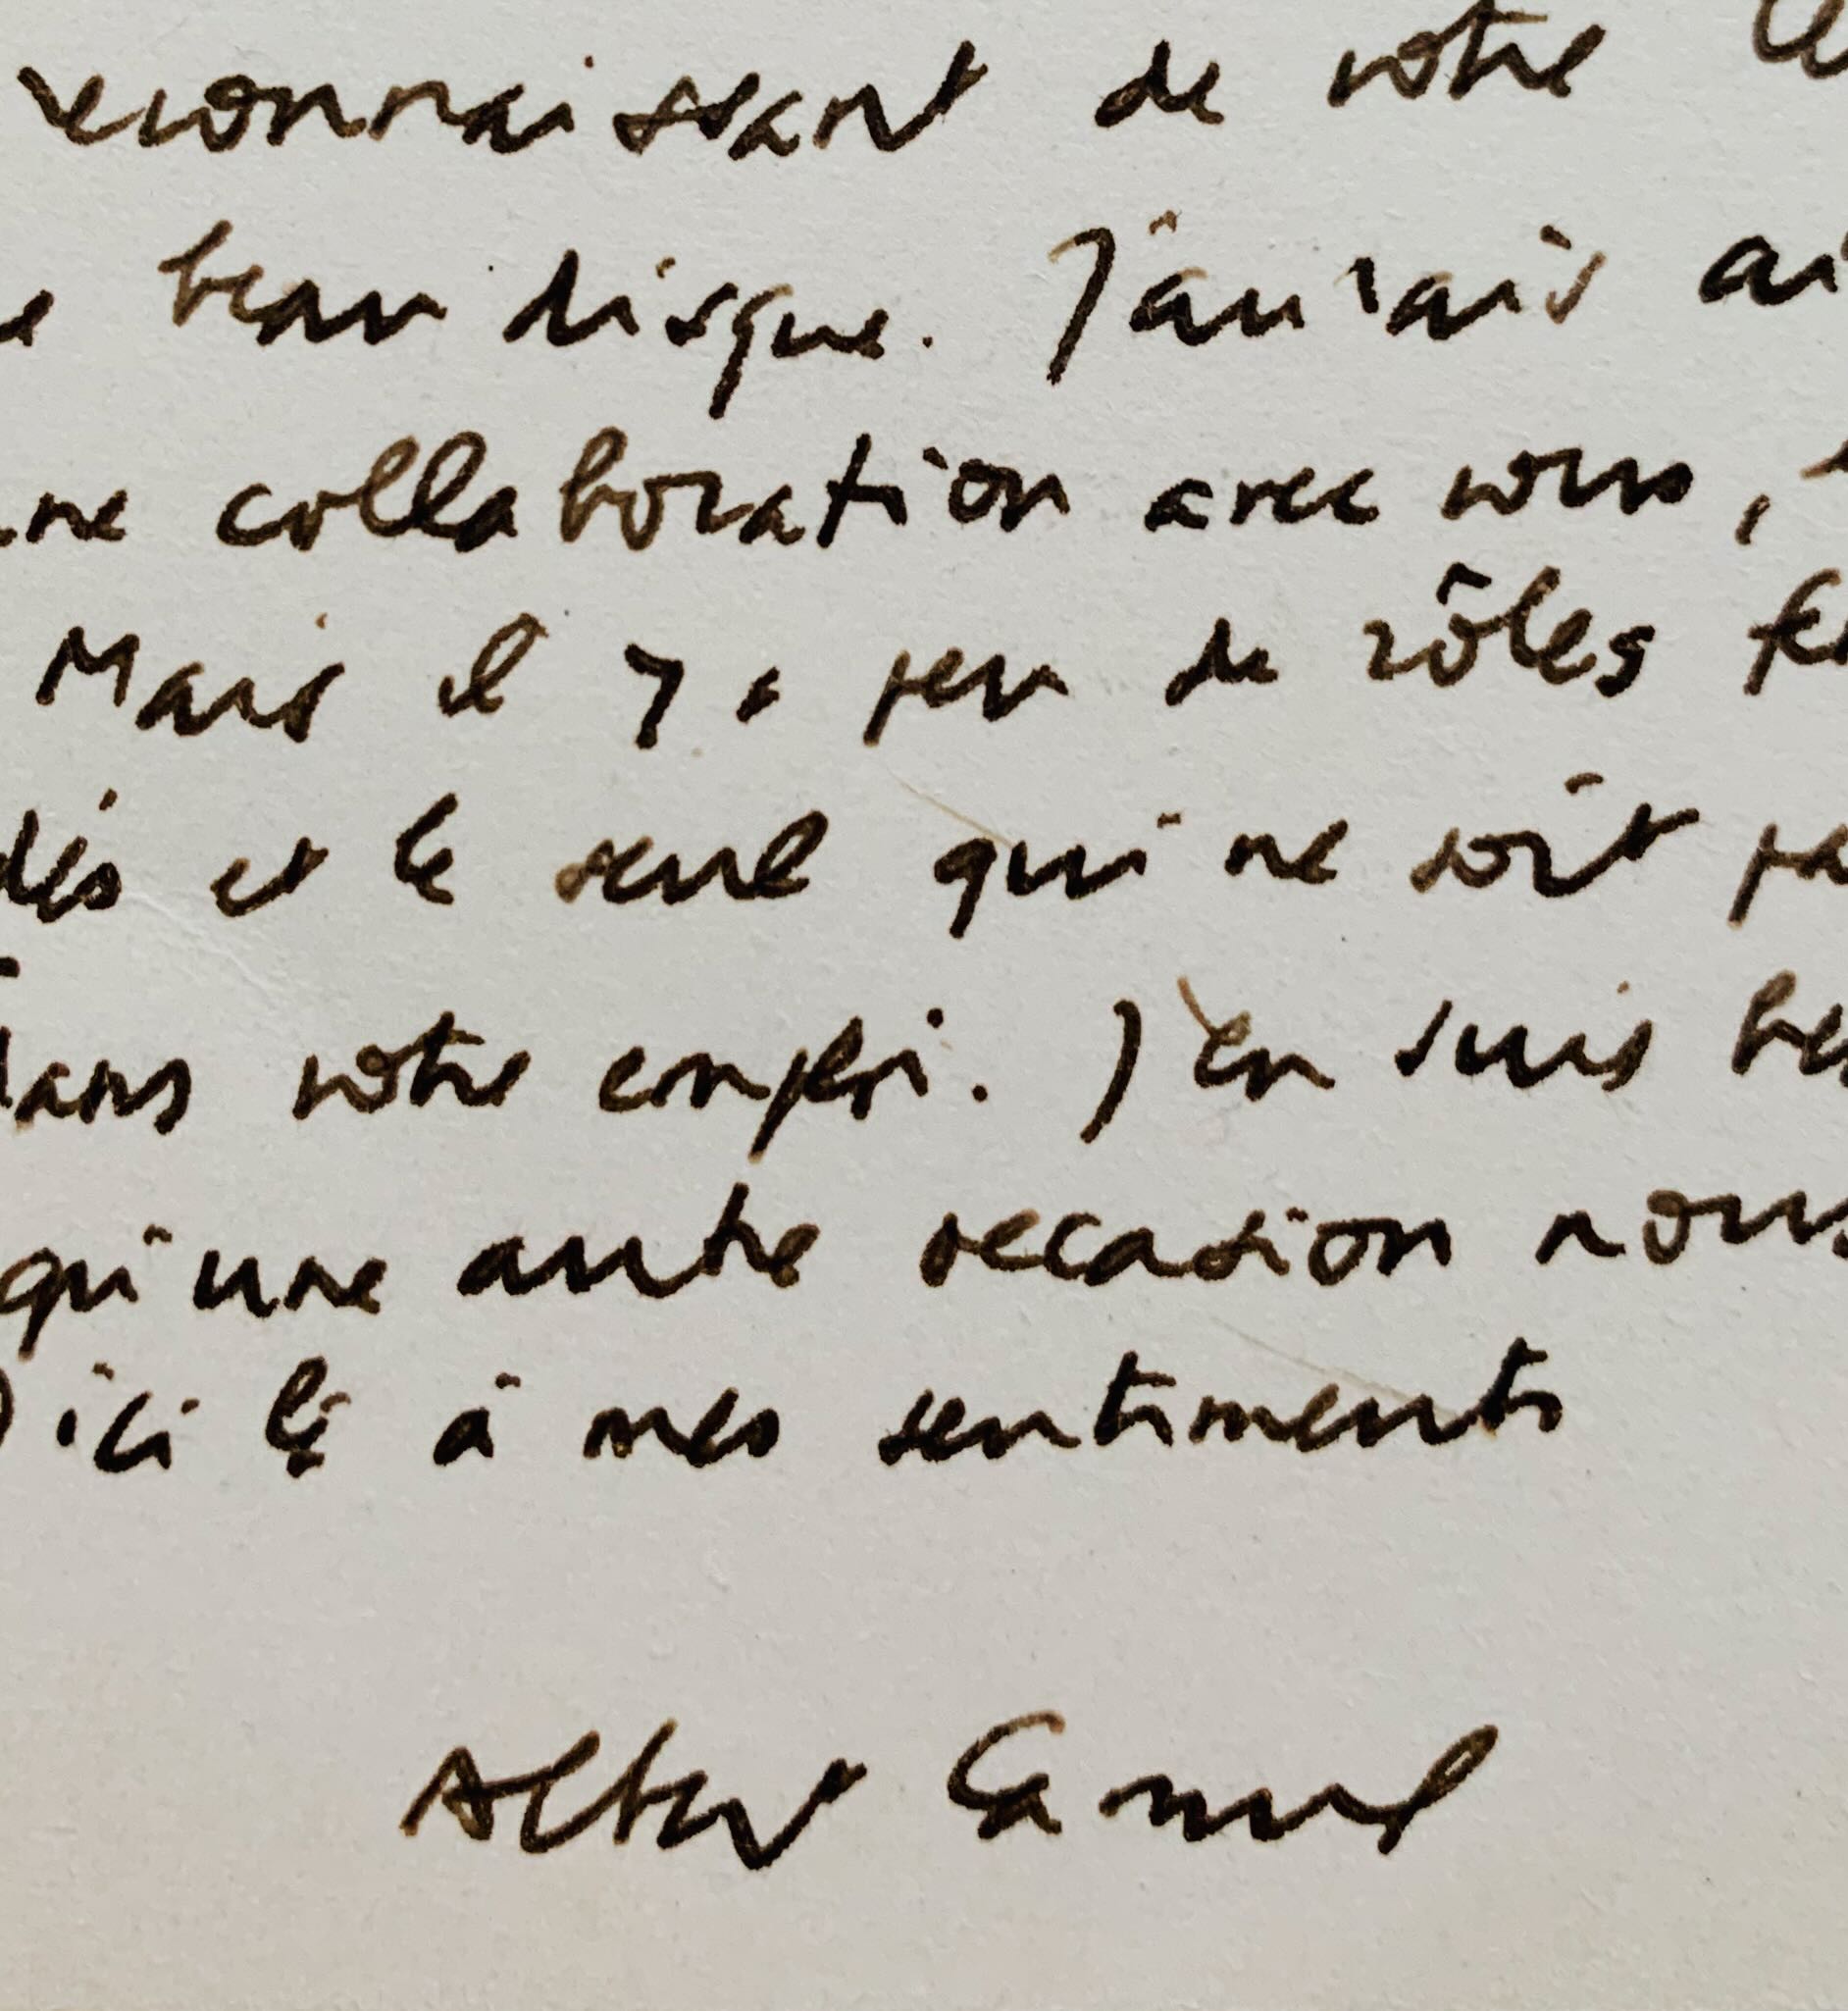 reconnaissant de votre le
e beau disque. J'aurais ai
une collaboration avec vous,
Mais il y a peu de rôles fe
dés et le seul qui ne soit pa
dans votre emploi. J'en suis be
qu'une autre occasion nous
D'ici là à mes sentiments
Albert Camus